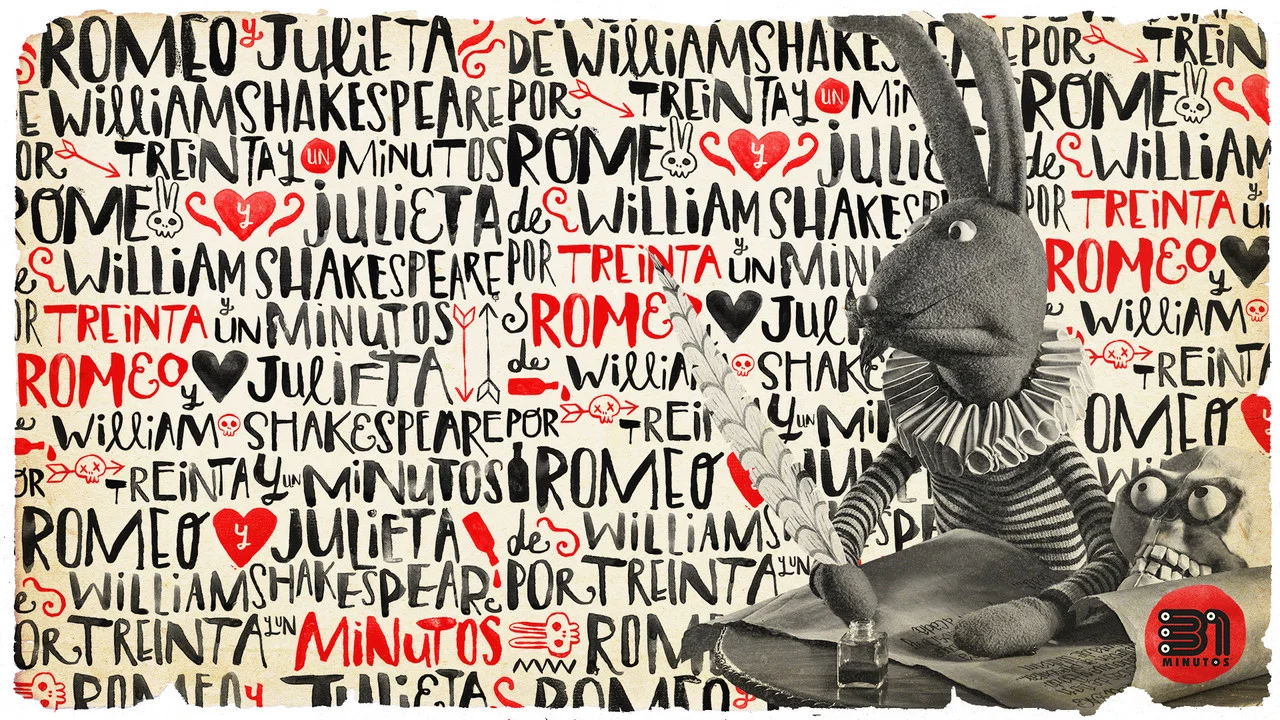 ROMEO y JULIETA DE WilliAM SHAKESPEARE POR TREINTA
DE WilliAM SHAKESPEARE POR TREINTA y UN MINUTOS ROME
POR TREINTA y UN MINUTOS ROME y JULIETA de WilliAM
ROME y JULIETA de WilliAM SHAKESPEARE POR TREINTA y UN
de WilliAM SHAKESPEARE POR TREINTA y UN MINU ROMEO y
POR TREINTA y UN MINUTOS ROMEO JULI y WilliAM
ROMEO y JULIETA de WilliAM SHAKE TREINTA
WilliAM SHAKESPEARE POR TREIN y UN MIN OMEO
POR TREINTA y UN MINUTOS ROMEO JUL Wi
ROMEO y JULIETA de WILLIAM SHAKESPE
de WILLIAM SHAKESPEARE POR TREINTA y UN
POR TREINTA y UN MINUTOS ROM
ROMEO y JULIETA ROMEO y
31
MINUTOS